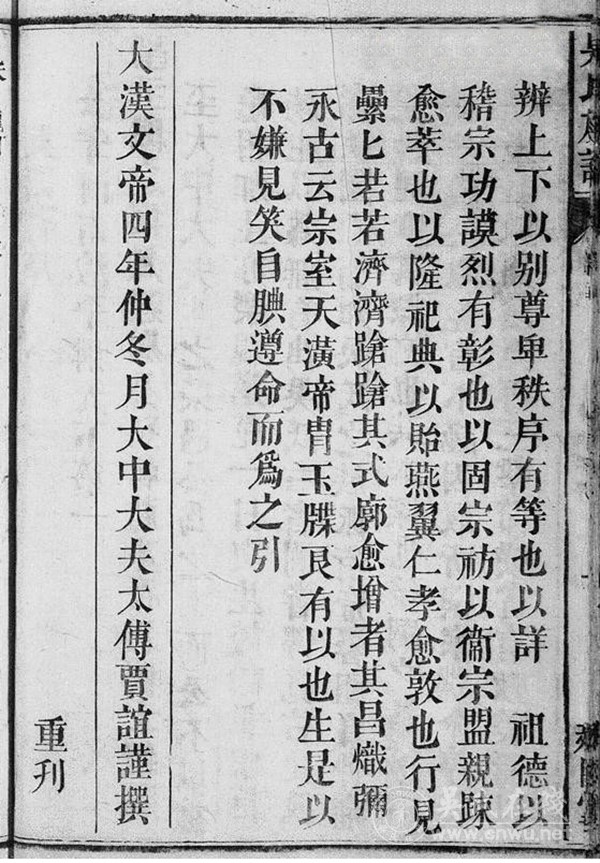 辨上下以别尊卑秩序有等也以詳　祖德以
稽宗功謨烈有彰也以固宗祊以衞宗盟親踈
愈萃也以隆祀典以貽燕翼仁孝愈敦也行見
纍匕若若濟濟蹌蹌其式廓愈增者其昌熾彌
永古云宗室天潢帝胄玉牒良有以也生是以
不嫌見笑自腆遵命而爲之引
大漢文帝四年仲冬月大中大夫太傅賈誼謹撰
重刊
www.cnwu.net